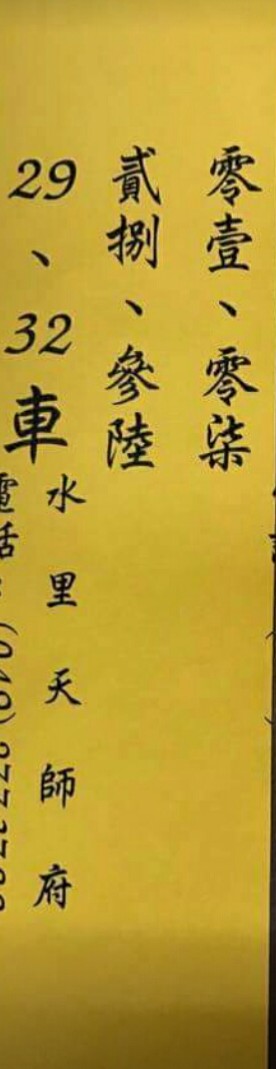 零壹、零柒
貳捌、參陸
29、32車
水里天師府
電話：(049)277